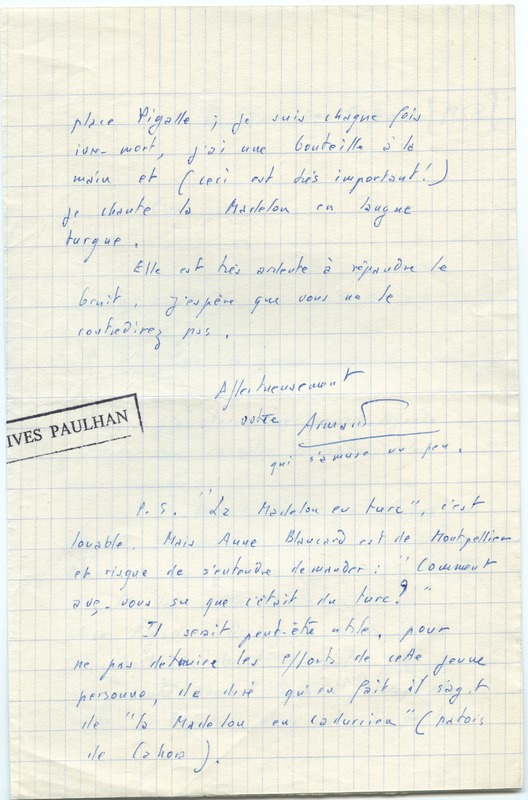 place Pigalle ; je suis chaque fois
ivre-mort, j'ai une bouteille à la
main et (ceci est très important!)
je chante la Madelon en langue
turque.
Elle est très ardente à répandre le
bruit. J'espère que vous ne le
contredirez pas.
Affectueusement
votre Armand
qui s'amuse un peu.
IVES PAULHAN
P.S. "La Madelon en turc", c'est
louable. Mais Anne Blancard est de Montpellier
et risque de s'entendre demander : "Comment
avez-vous su que c'était du turc?"
Il serait peut-être utile, pour
ne pas détruire les efforts de cette jeune
personne, de dire qu'en fait il s'agit
de "la Madelon en cadurcien" (patois
de Cahors).